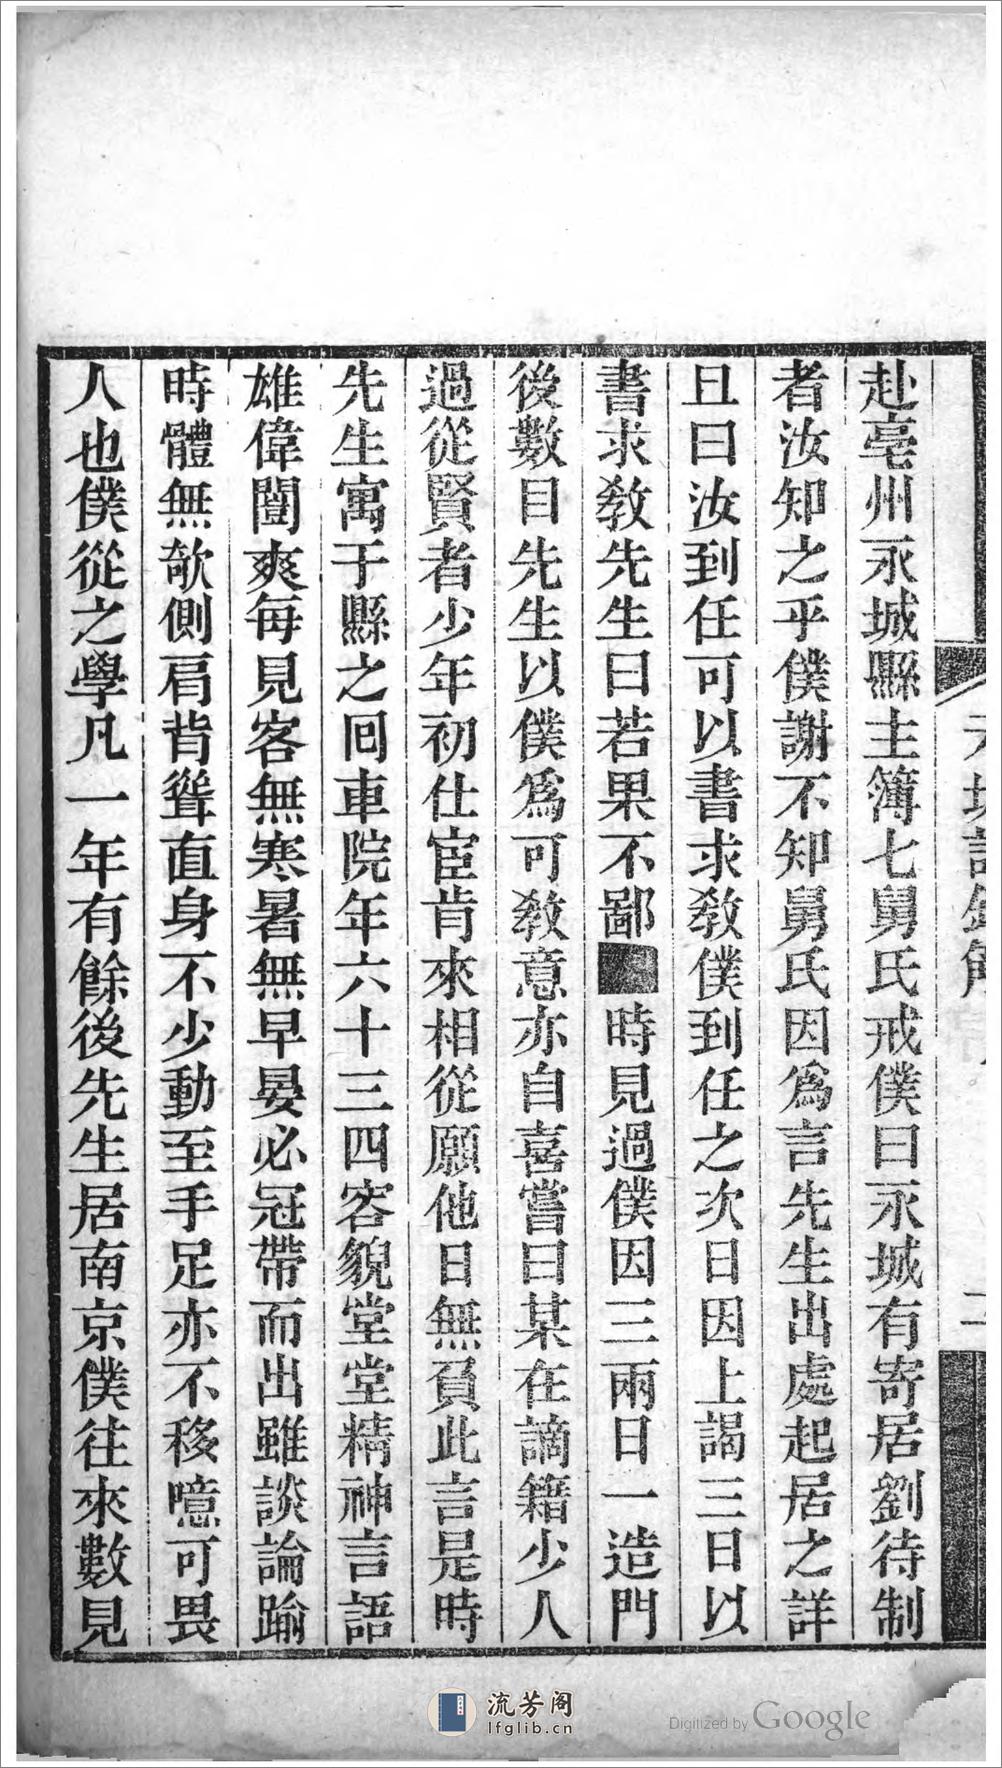 赴亳州永城縣主簿七舅氏戒僕曰永城有寄居劉待制
者汝知之乎僕謝不知舅氏因爲言先生出處起居之詳
且曰汝到任可以書求教僕到任之次日因上謁三日以
書求教先生曰若果不鄙時見過僕因三兩日一造門
後數目先生以僕爲可教意亦自喜嘗曰某在謫籍少人
過從賢者少年初仕宦肯來相從願他日無負此言是時
先生寓于縣之回車院年六十三四容貌堂堂精神言語
雄偉闓爽每見客無寒暑無早晏必冠帶而出雖談論踰
時體無欹側肩背聳直身不少動至手足亦不移噫可畏
人也僕從之學凡一年有餘後先生居南京僕往來數見
流芳阁
lfglib.cn
Digitized by Google